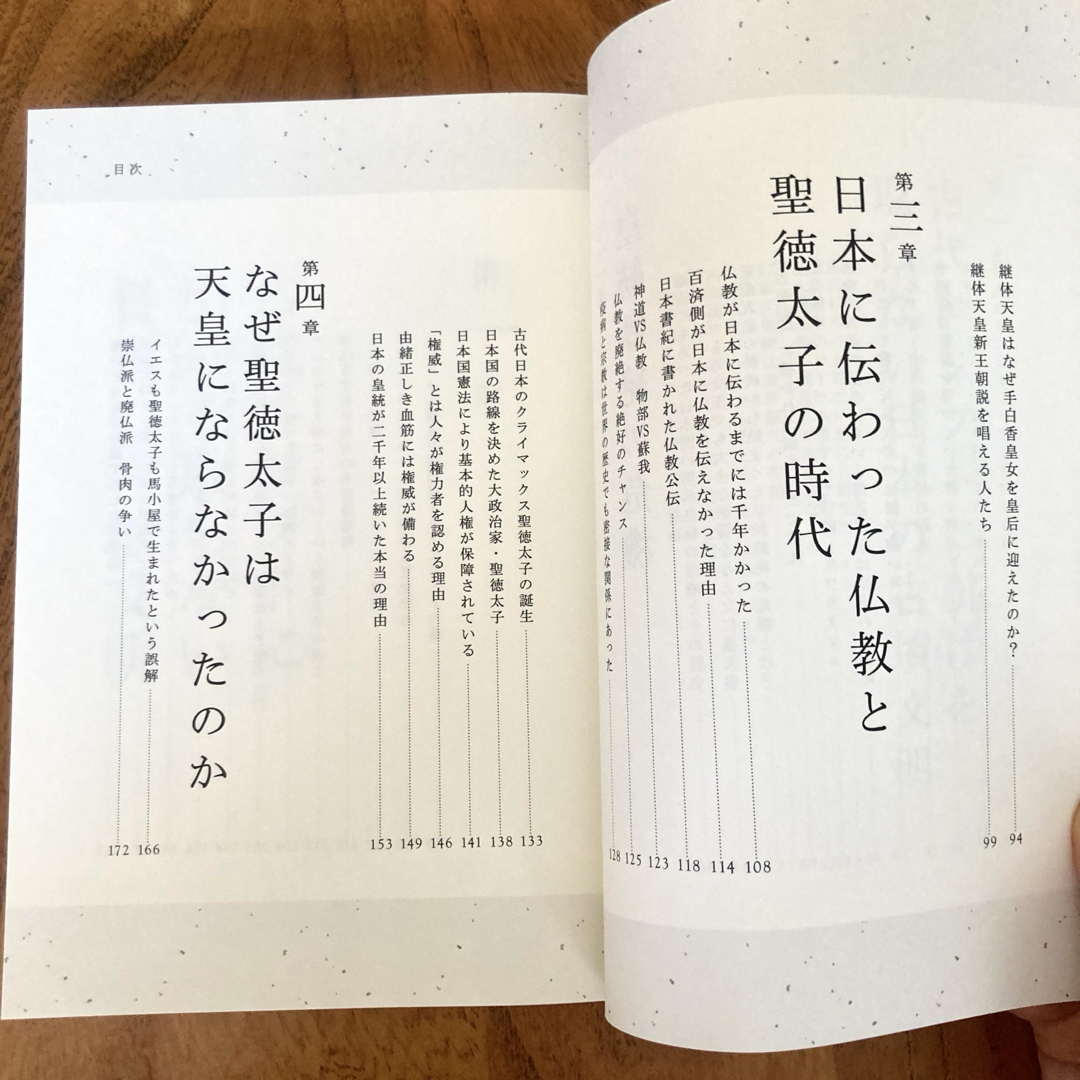 継体天皇はなぜ手白香皇女を皇后に迎えたのか? 94
継体天皇新王朝説を唱える人たち 99
第三章
日本に伝わった仏教と
聖徳太子の時代
仏教が日本に伝わるまでには千年かかった 108
百済側が日本に仏教を伝えなかった理由 114
日本書紀に書かれた仏教公伝 118
神道VS仏教 物部VS蘇我 123
仏教を廃絶する絶好のチャンス 125
疫病と宗教は世界の歴史でも密接な関係にあった 128
目次
古代日本のクライマックス聖徳太子の誕生 133
日本国の路線を決めた大政治家・聖徳太子 138
日本国憲法により基本的人権が保障されている 141
「権威」とは人々が権力者を認める理由 146
由緒正しき血筋には権威が備わる 149
日本の皇統が二千年以上続いた本当の理由 153
第四章
なぜ聖徳太子は
天皇にならなかったのか
イエスも聖徳太子も馬小屋で生まれたという誤解 166
崇仏派と廃仏派 骨肉の争い 172